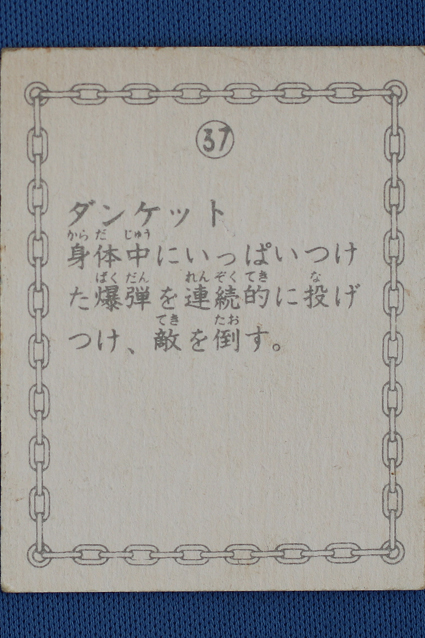 37
ダンケット
身体中にいっぱいつけ
た爆弾を連続的に投げ
つけ、敵を倒す。